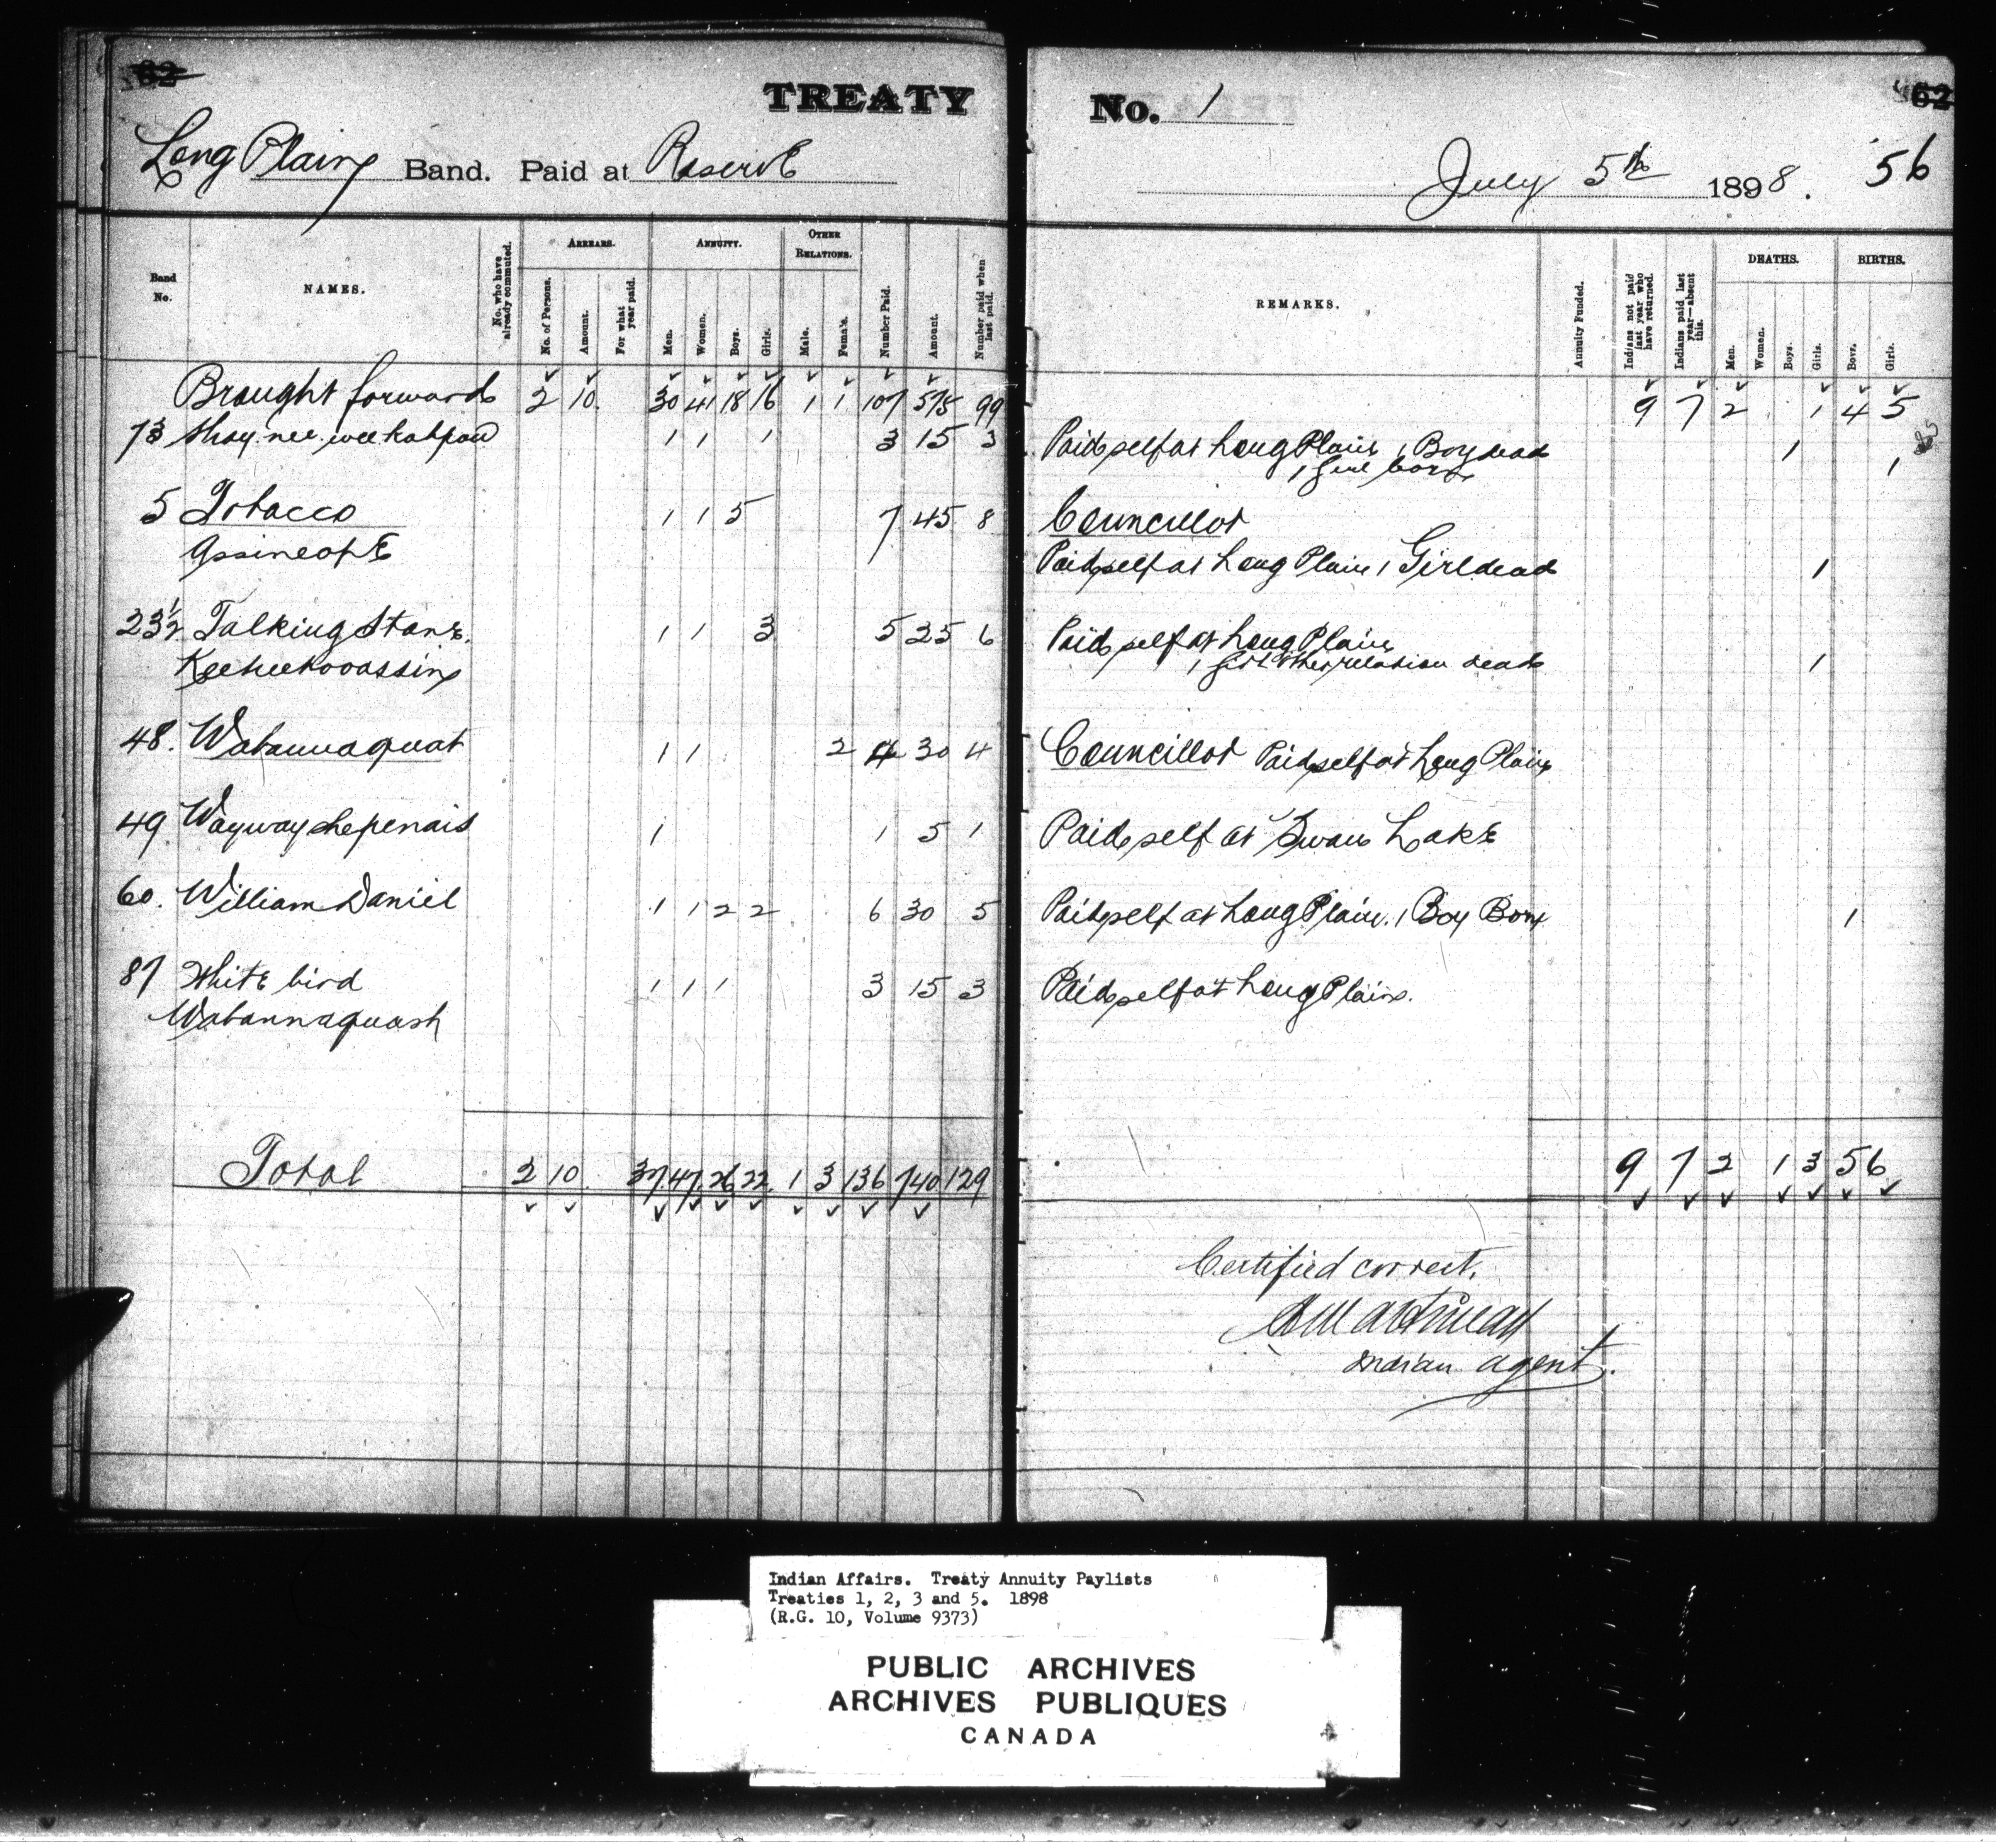 62
TREATY No. 1 62
Long Plain Band. Paid at Reserve July 5th 1898. 56
Band No. NAMES. No. who have already commuted. ARREARS. No. of Persons. Amount. For what year paid. ANNUITY. Men. Women. Boys. Girls. OTHER RELATIONS. Male. Female. Number Paid. Amount. Number paid when last paid. REMARKS. Annuity Funded. Indians not paid last year who have returned. Indians paid last year—absent this. DEATHS. Men. Women. Boys. Girls. BIRTHS. Boys. Girls.
Brought forward 2 10. 30 41 18 16 1 1 107 575 99 9 7 2 1 4 5
73 1 1 1 3 15 3 Paid self at Long Plain 1 Boy dead 1
1 Girl born 1
5 Tobacco 1 1 5 7 45 8 Councillor
Assineope Paid self at Long Plain 1 Girl dead 1
23½ Talking Stone. 1 1 3 5 25 6 Paid self at Long Plain
Keekeekooassin 1 Girl other relation dead 1
48. Wabannaquat 1 1 2 4 30 4 Councillor Paid self at Long Plain
49 Waywayshepenais 1 1 5 1 Paid self at Swan Lake
60. William Daniel 1 1 2 2 6 30 5 Paid self at Long Plain. 1 Boy Born 1
87 White bird 1 1 1 3 15 3 Paid self at Long Plain.
Wabannaquash
Total 2 10. 37 47 26 22 1 3 136 740 129 9 7 2 1 3 5 6
Certified correct.
Indian agent.
Indian Affairs. Treaty Annuity Paylists
Treaties 1, 2, 3 and 5. 1898
(R.G. 10, Volume 9373)
PUBLIC ARCHIVES
ARCHIVES PUBLIQUES
CANADA